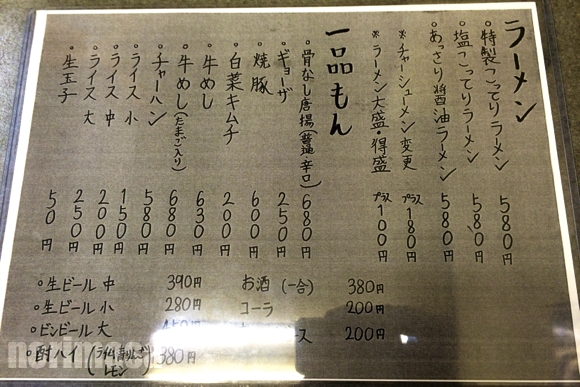 ラーメン
。特製こってりラーメン 580円
。塩こってりラーメン 580円
。あっさり醤油ラーメン 580円
※チャーシューメン変更 プラス180円
※ラーメン大盛・得盛 プラス100円
一品もん
。骨なし唐揚(醤油・辛口) 680円
。ギョーザ 250円
。焼豚 600円
。白菜キムチ 200円
。牛めし 630円
。牛めし(たまご入り) 680円
。チャーハン 580円
。ライス 小 150円
。ライス 中 200円
。ライス 大 250円
。生玉子 50円
。生ビール 中 390円
。生ビール 小 280円
。ビンビール 大
。酎ハイ 380円
レモン
お酒(一合) 380円
コーラ 200円
ース 200円
norimac